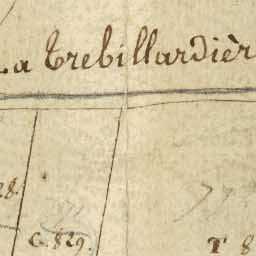 La Trebillardièr
28.
C. 829.
T 8